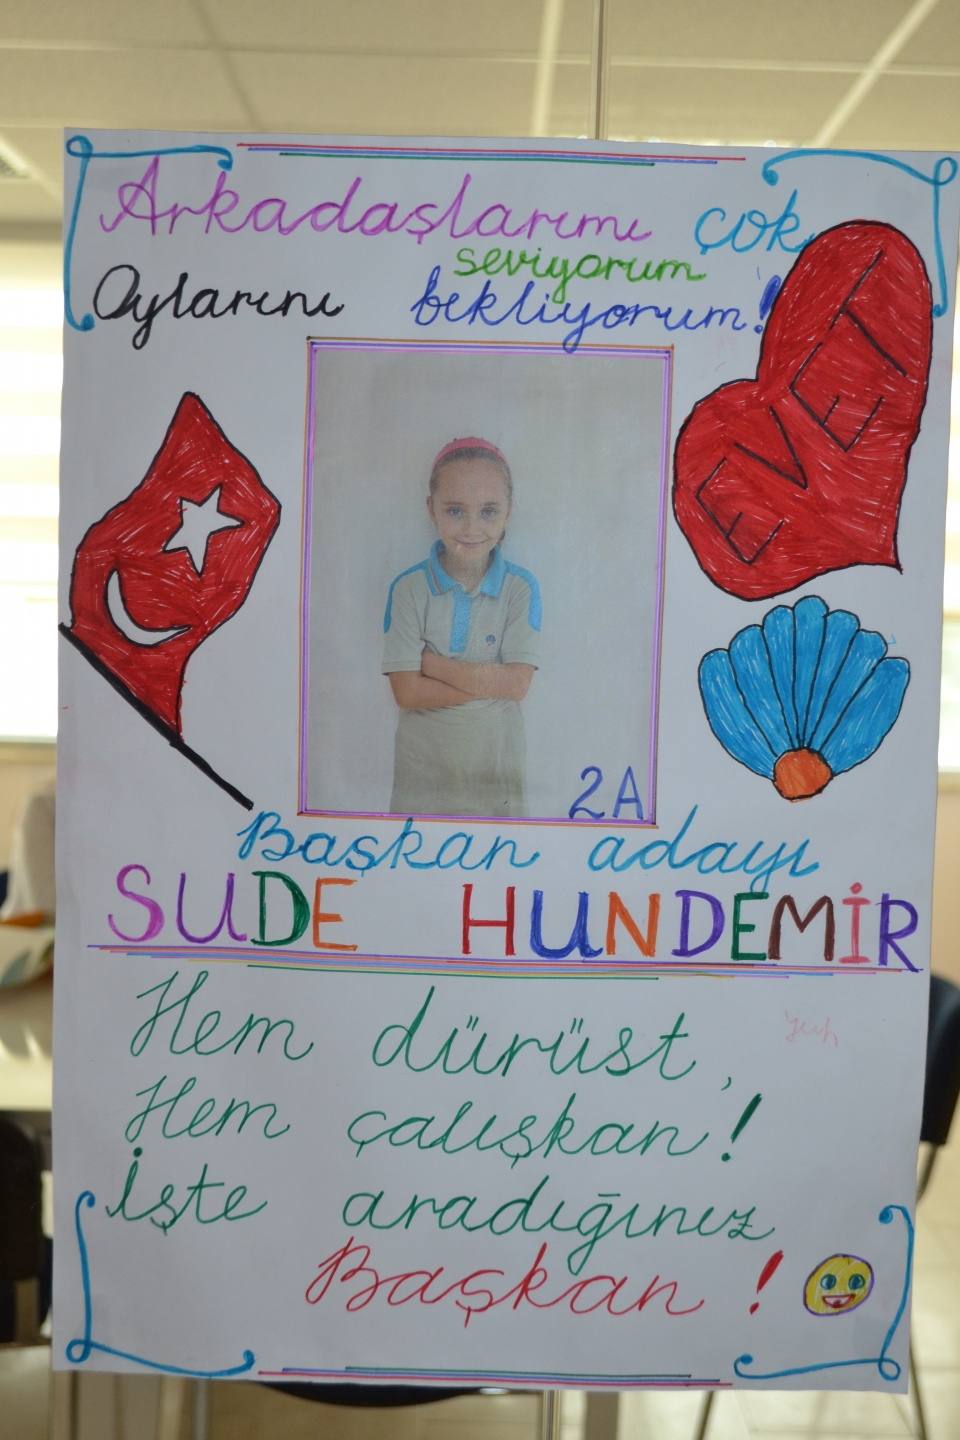 Arkadaşlarımı çok
seviyorum
Oylarını bekliyorum!
EVET
2A
Başkan adayı
SUDE HUNDEMİR
Hem dürüst,
Hem çalışkan!
İşte aradığınız
Başkan!